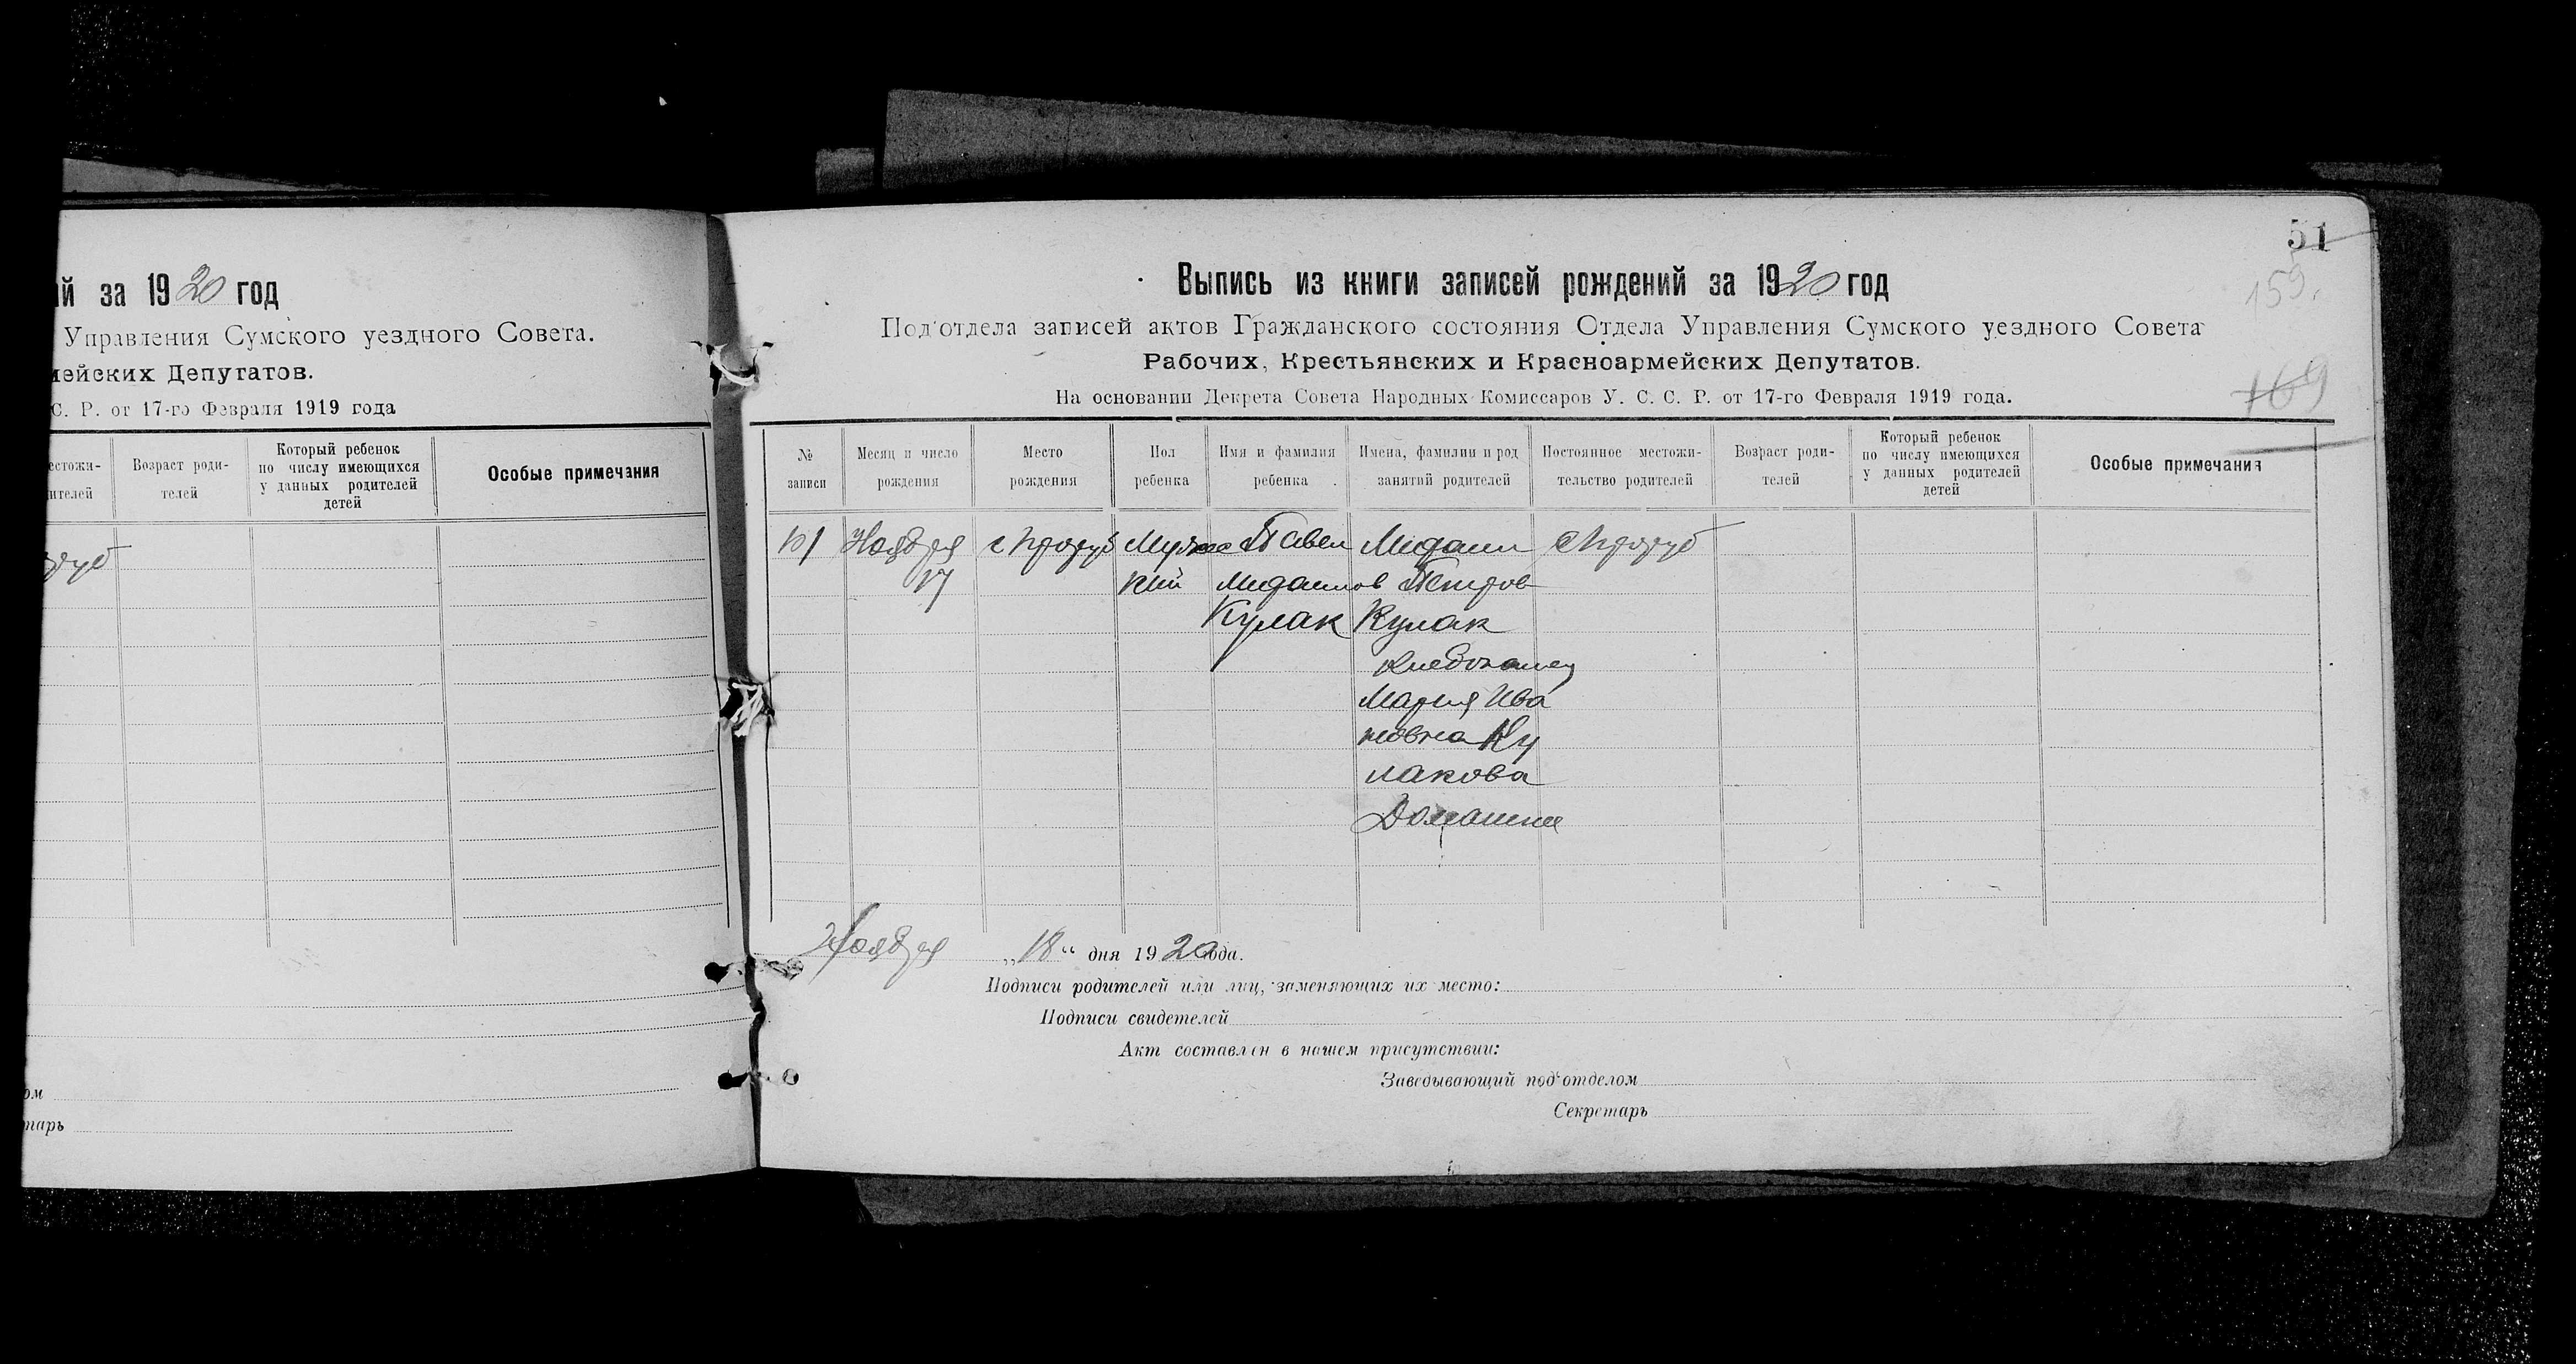 ий за 1920 год
Управления Сумского уездного Совета.
мейских Депутатов.
С. Р. от 17-го Февраля 1919 года
естожи-
ителей
Возраст роди-
телей
Который ребенок
по числу имеющихся
у данных родителей
детей
Особые примечания
ом
тарь
51
159.
169
Выпись из книги записей рождений за 1920 год
Под'отдела записей актов Гражданского состояния Отдела Управления Сумского уездного Совета
Рабочих, Крестьянских и Красноармейских Депутатов.
На основании Декрета Совета Народных Комиссаров У. С. С. Р. от 17-го Февраля 1919 года.
№
записи
Месяц и число
рождения
Место
рождения
Пол
ребенка
Имя и фамилия
ребенка
Имена, фамилии и род
занятий родителей
Постоянное местожи-
тельство родителей
Возраст роди-
телей
Который ребенок
по числу имеющихся
у данных родителей
детей
Особые примечания
Ноября
17
с Проруб
Мужс
кий
Павел
Кулак
Петров
Кулак
Мария Ива
новна Ку
лакова
с Проруб
Ноября „18“ дня 1920 года.
Подписи родителей или лиц, заменяющих их место:
Подписи свидетелей
Акт составлен в нашем присутствии:
Заведывающий под'отделом
Секретарь